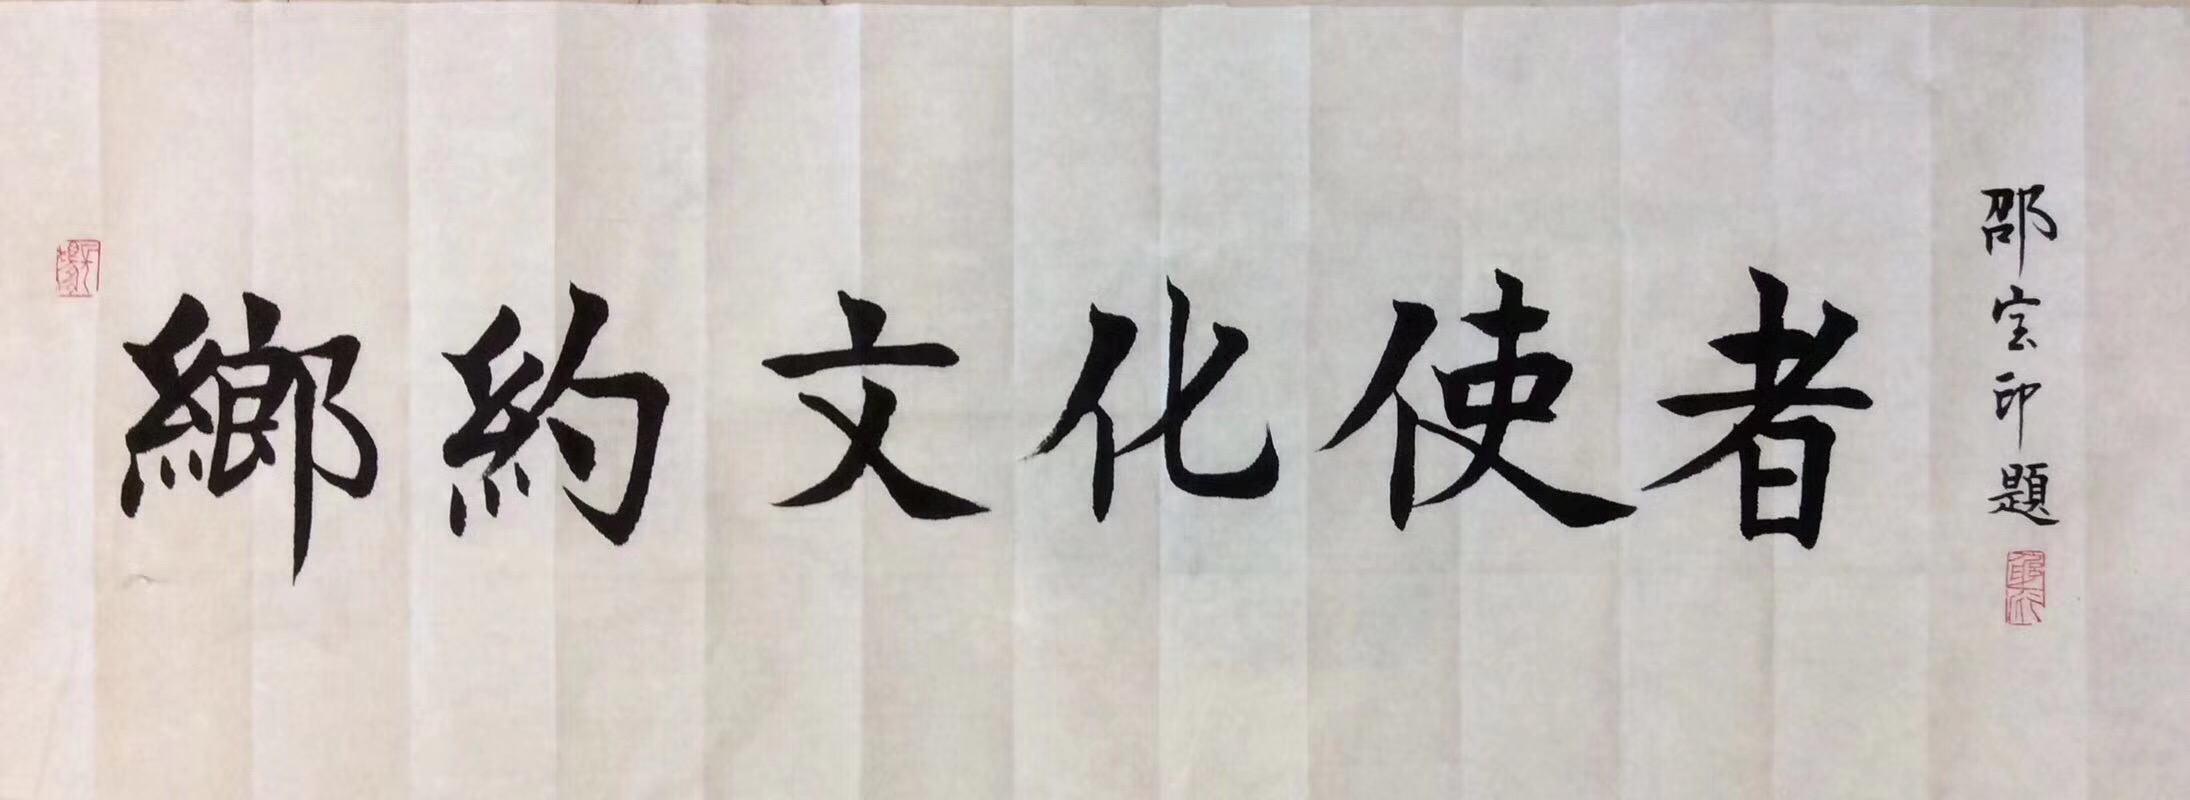 鄉約文化使者
邵宝印題